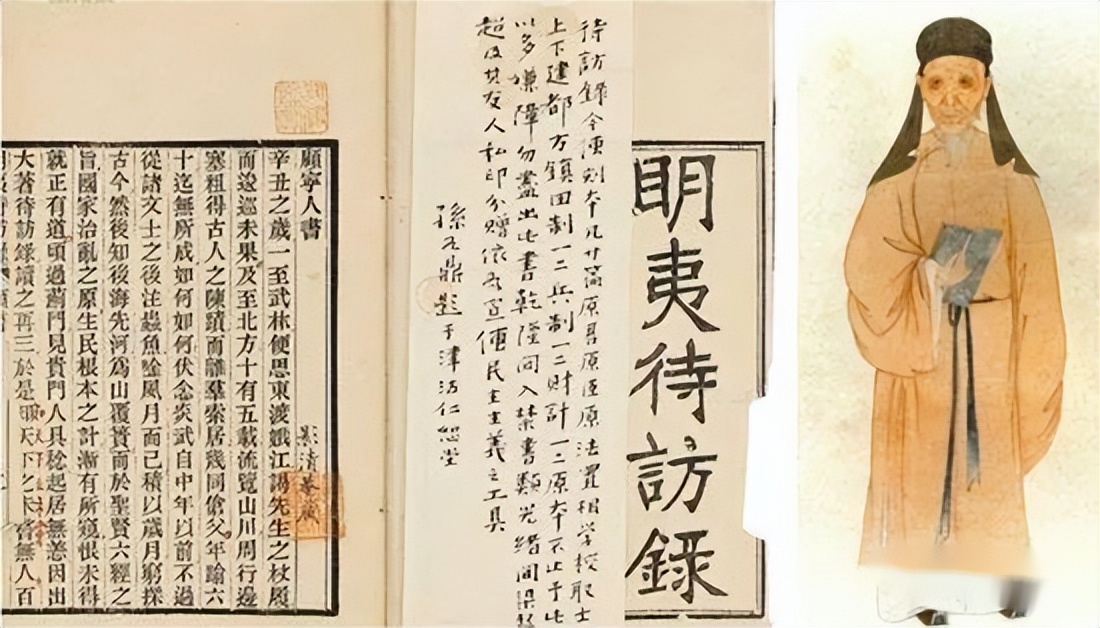 明夷待訪錄
待訪錄今刻本凡廿篇原君原臣原法置相學校取士
上下建都方鎮田制一二兵制一二財計一二原本不止于此
以多嫌勿盡出此書乾隆間入禁書類光緒間梁
超及其友人私印分贈依為宣傳民主主義之工具
孫鼎題于津沽仁恕堂
顧寧人書
辛丑之歲一至武林便思東渡娥江謁先生之杖履
而逡巡未果及至北方十有五載流覽山川周行邊
塞粗得古人之陳蹟而離羣索居幾同傖父年踰六
十迄無所成如何如何伏念炎武自中年以前不過
從諸文士之後注蟲魚唫風月而已積以歲月窮探
古今然後知後海先河爲山覆簣而於聖賢六經之
旨國家治亂之原生民根本之計漸有所窺恨未得
就正有道頃過薊門見貴門人具稔起居無恙因出
大著待訪錄讀之再三於是天下之未嘗無人百